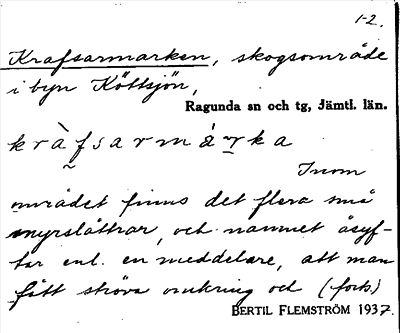 1-2.
Krafsarmarken, skogsområde
i byn Köttsjön,
Ragunda sn och tg, Jämtl. län.
kràfsarmárka
Inom
området finns det flera små
myrslåttrar, och namnet åsyf-
tar enl. en meddelare, att man
fått ströva omkring och (forts.)
BERTIL FLEMSTRÖM 1937.